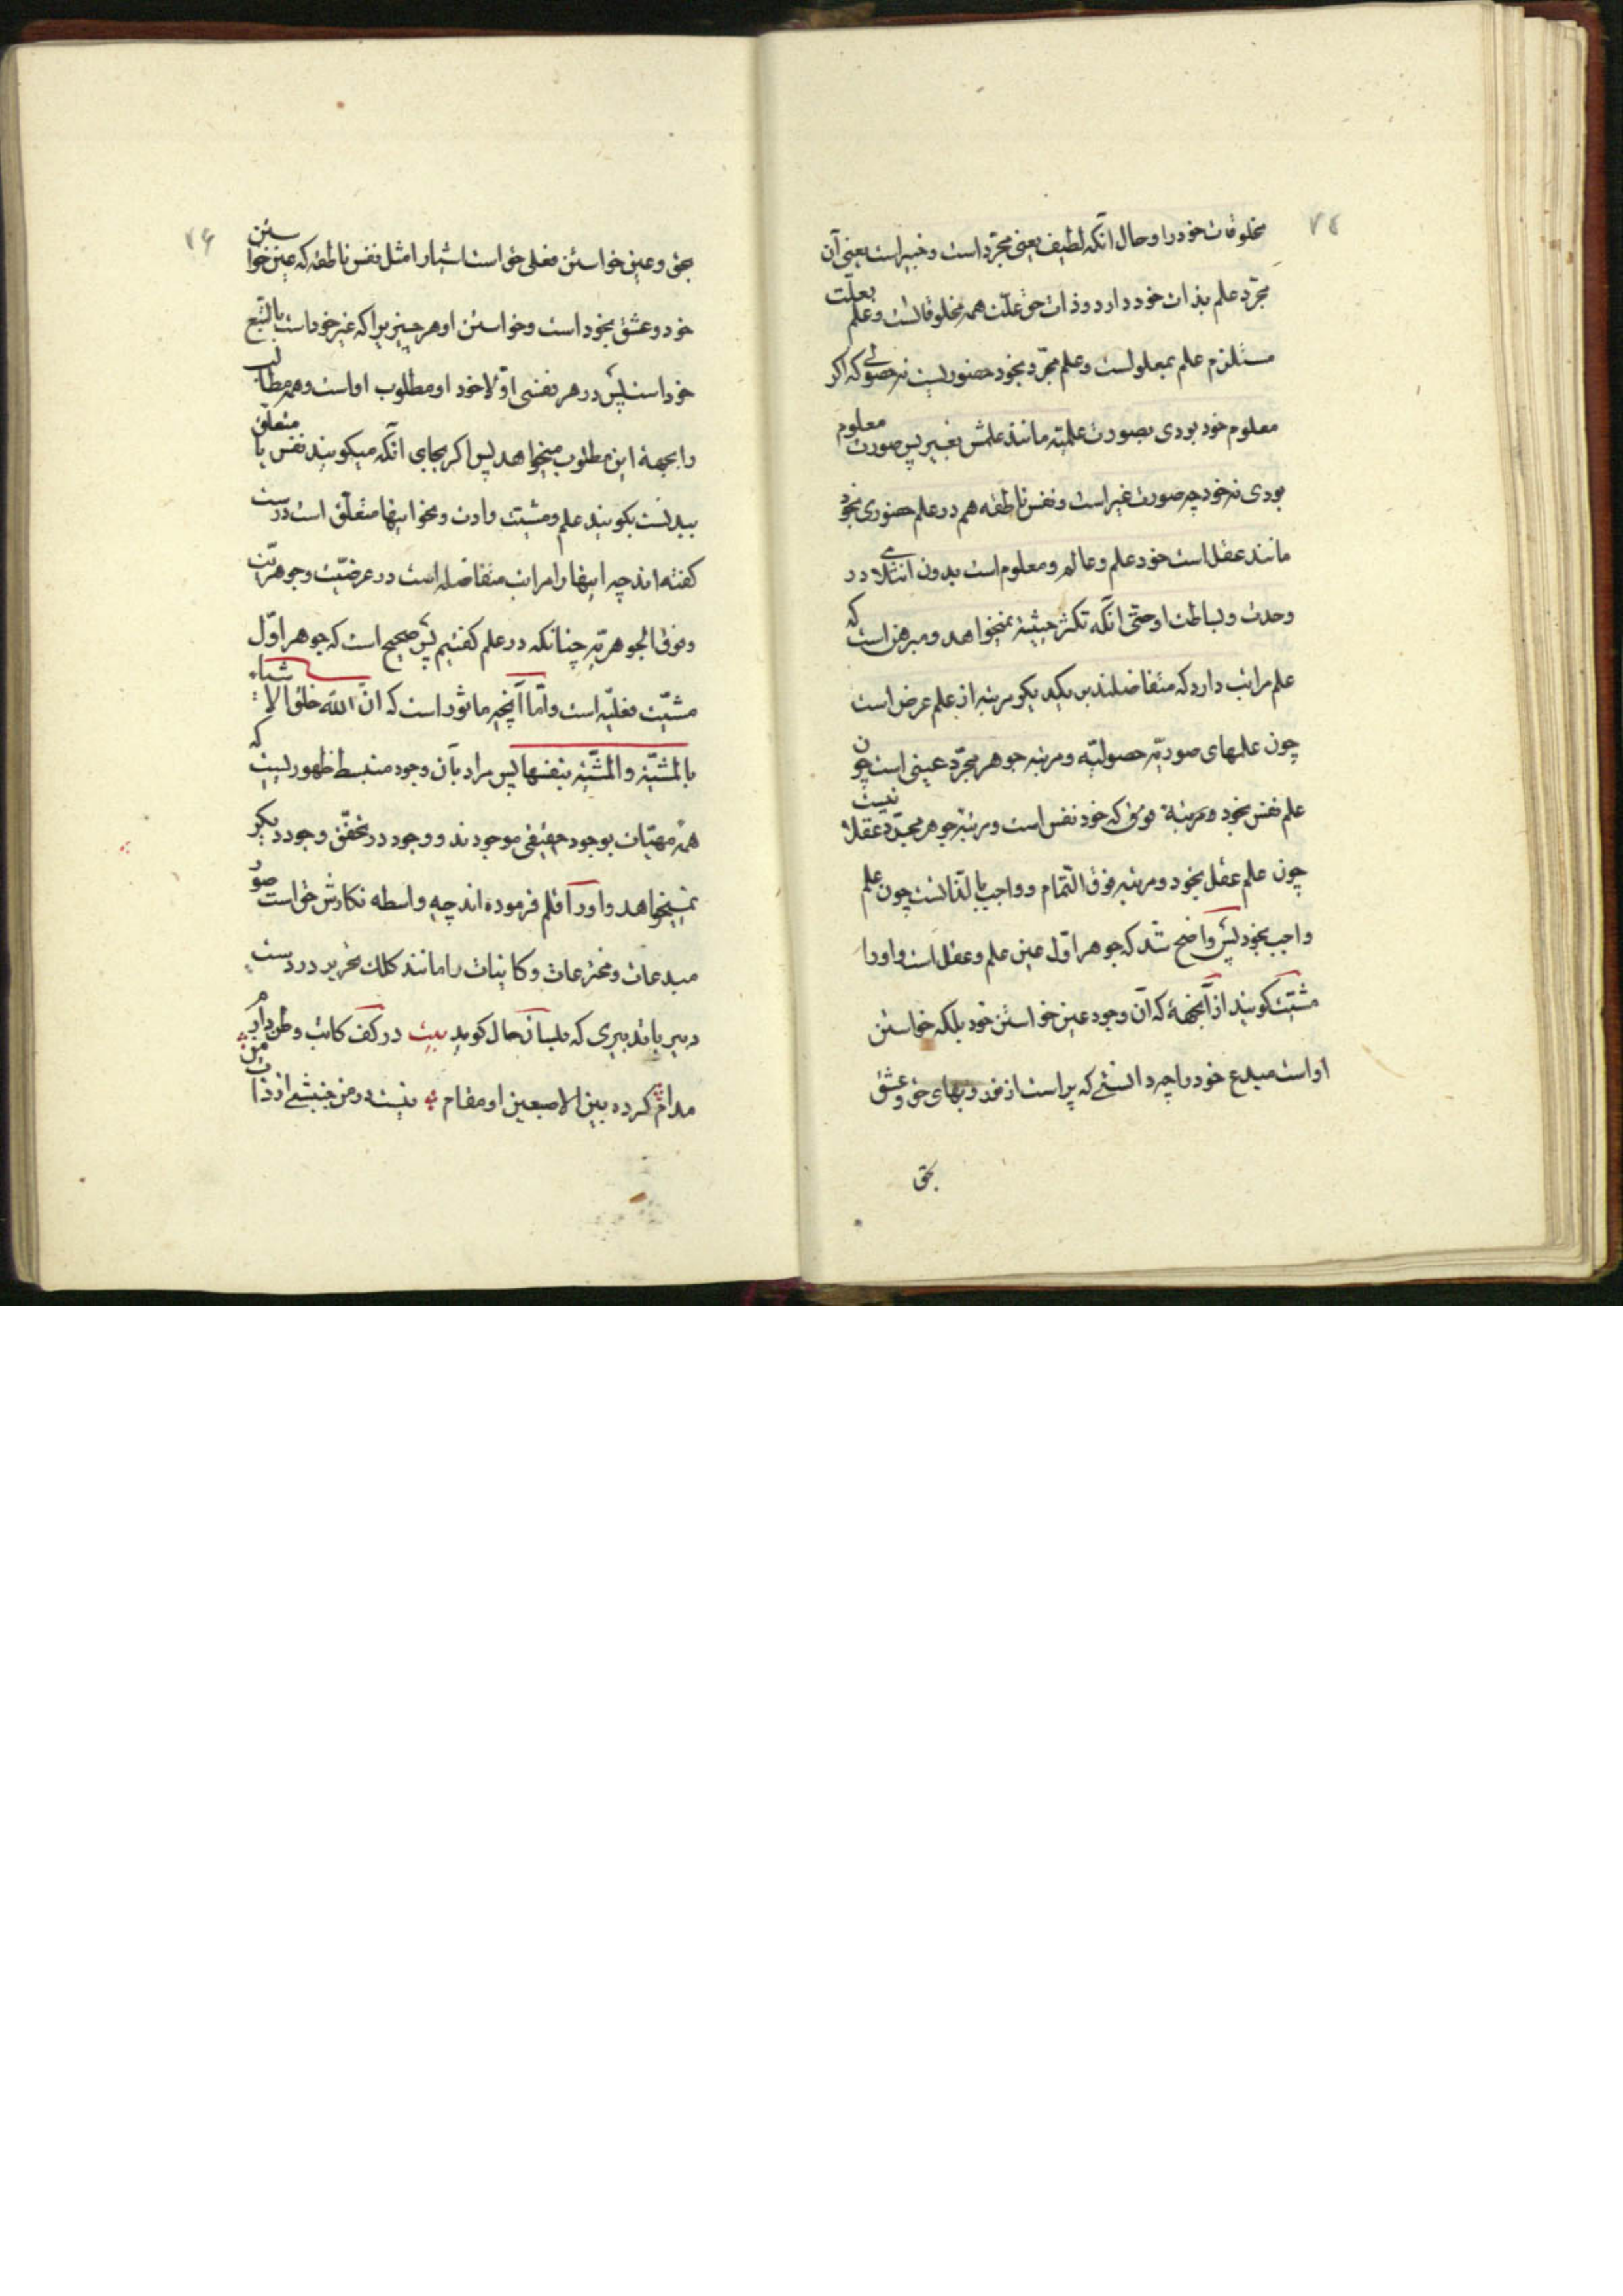 ۷۵
مخلوقات خود را و حال آنکه لطیف یعنی مجرّد است و خبیر است یعنی آن
مجرّد علم بذات خود دارد و ذات حق علّت همه مخلوقاتست و علم بعلّت
مستلزم علم بمعلولست و علم مجرّد بخود حضوریست نه حصولی که اکر
معلوم خود بودی بصورت علمیّه مانند علمش بغیر پس صورت معلوم
بودی نه خود چه صورت غیر است و نفس ناطقه هم در علم حضوری بخود
مانند عقل است خود علم و عالم و معلوم است بدون انثلامی در
وحدت و بساطت او حتّی آنکه تکثّر حیثیّة نمیخواهد و مبرهن است که
علم مراتب دارد که متفاضلند بر یکدیکر مرتبه از علم عرض است
چون علمهای صوریّه حصولیّه و مرتبه جوهر مجرّد عینی است چون
علم نفس بخود و مرتبهٔ فوق که خود نفس است و مرتبه جوهر مجرّد عقلانیست
چون علم عقل بخود و مرتبه فوق التّمام و واجب بالذّاتست چون علم
واجب بخود پس واضح شد که جوهر اوّل عین علم و عقل است و او را
مشیّت کویند از آنجهة که آن وجود عین خواستن خود بلکه خواستن
اوست مبدع خود را چه دانستی که پر است از نور و بهای حق و عشق
بحق
۷۶
بحق و عین خواستن فعلی حق است اشیا را مثل نفس ناطقه که عین خواستن
خود و عشق بخود است و خواستن او هر چیز یرا که غیر خود است بالتّبع
خود است پس در هر نفسی اوّلا خود او مطلوب او است و همه مطالب
را بجهة این مطلوب میخواهد پس اکر بجای آنکه میکویند نفس متعلّق با
ببدنست بکویند علم و مشیّت وادن و نحو اینها متعلّق است درست
کفته اند چه اینها را مراتب متفاضله است در عرضیّت و جوهریّت
و فوق الجوهریّه چنانکه در علم کفتیم پس صحیح است که جوهر اوّل
مشیّت فعلیّه است و امّا آنچه ماثور است که انّ الله خلق الاشیاء
بالمشیّة و المشیّة بنفسها پس مراد بآن وجود منبسط ظهوریست که
همهٔ مهیّات بوجود حقیقی موجودند و وجود در تحقّق وجود دیکر
نمیخواهد و او را قلم فرموده اند چه واسطه نکارش حق است صور
مبدعات و مخترعات و کاینات را مانند کلک تحریر در دست
دبیر با تدبیری که بلسان حال کوید بیت در کف کاتب وطن دارم
مدام کرده بین الاصبعین او مقام نیست در من جنبشی از ذات من